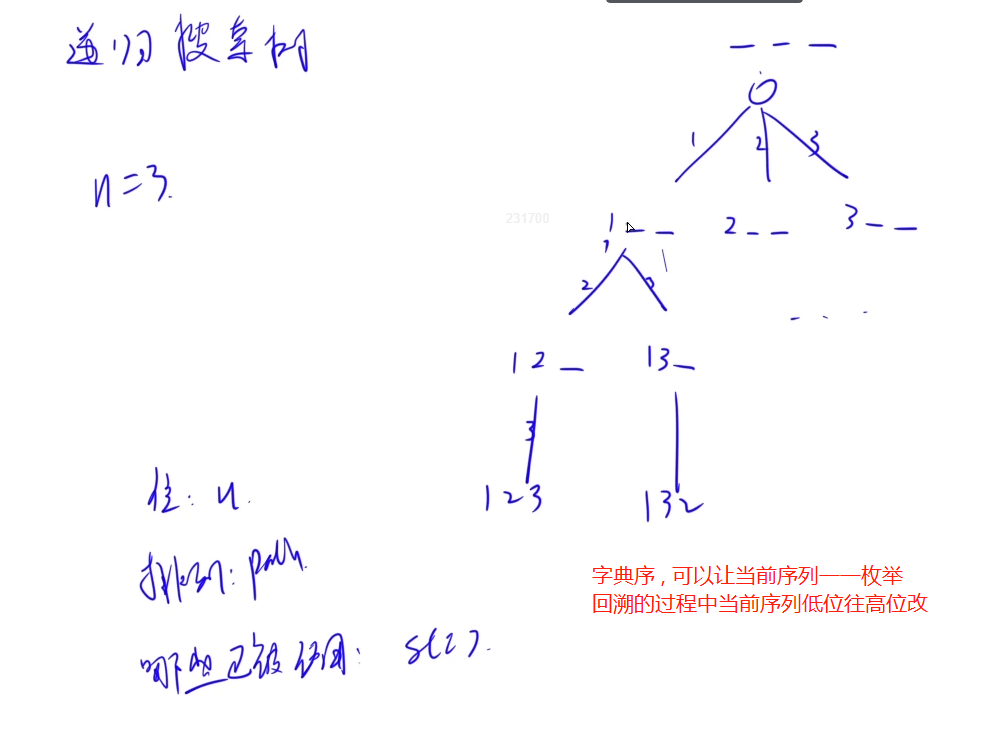 递归搜索树
_ _ _
n=3.
1 2 3
231700
1 _ _ 2 _ _ 3 _ _
2 3
1 2 _ 13 _
3
123 132
位: u.
排列: path.
哪些已被使用: s[ ].
字典序,可以让当前序列一一枚举
回溯的过程中当前序列低位往高位改